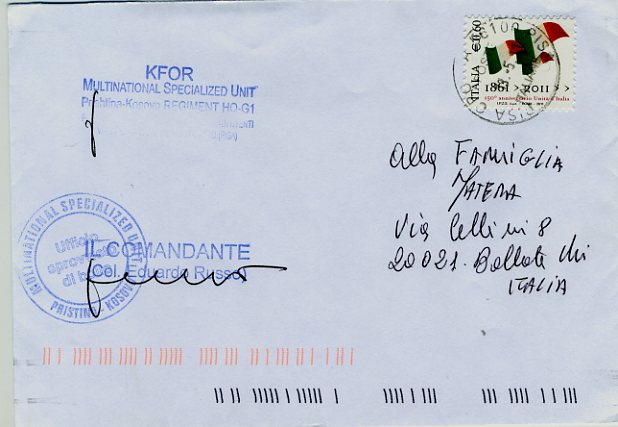 KFOR
MULTINATIONAL SPECIALIZED UNIT
Prishtina-Kosovo REGIMENT HQ-G1
ITALIA €0,60
1861 > 2011 > >
150° anniversario Unità d'Italia
PISA
MULTINATIONAL SPECIALIZED UNIT
PRISTINA KOSOVO
Ufficio
IL COMANDANTE
(Col. Eduardo Russo)
Alla FAMIGLIA
MATERA
Via Cellini 8
20021. Bollate Mi
ITALIA